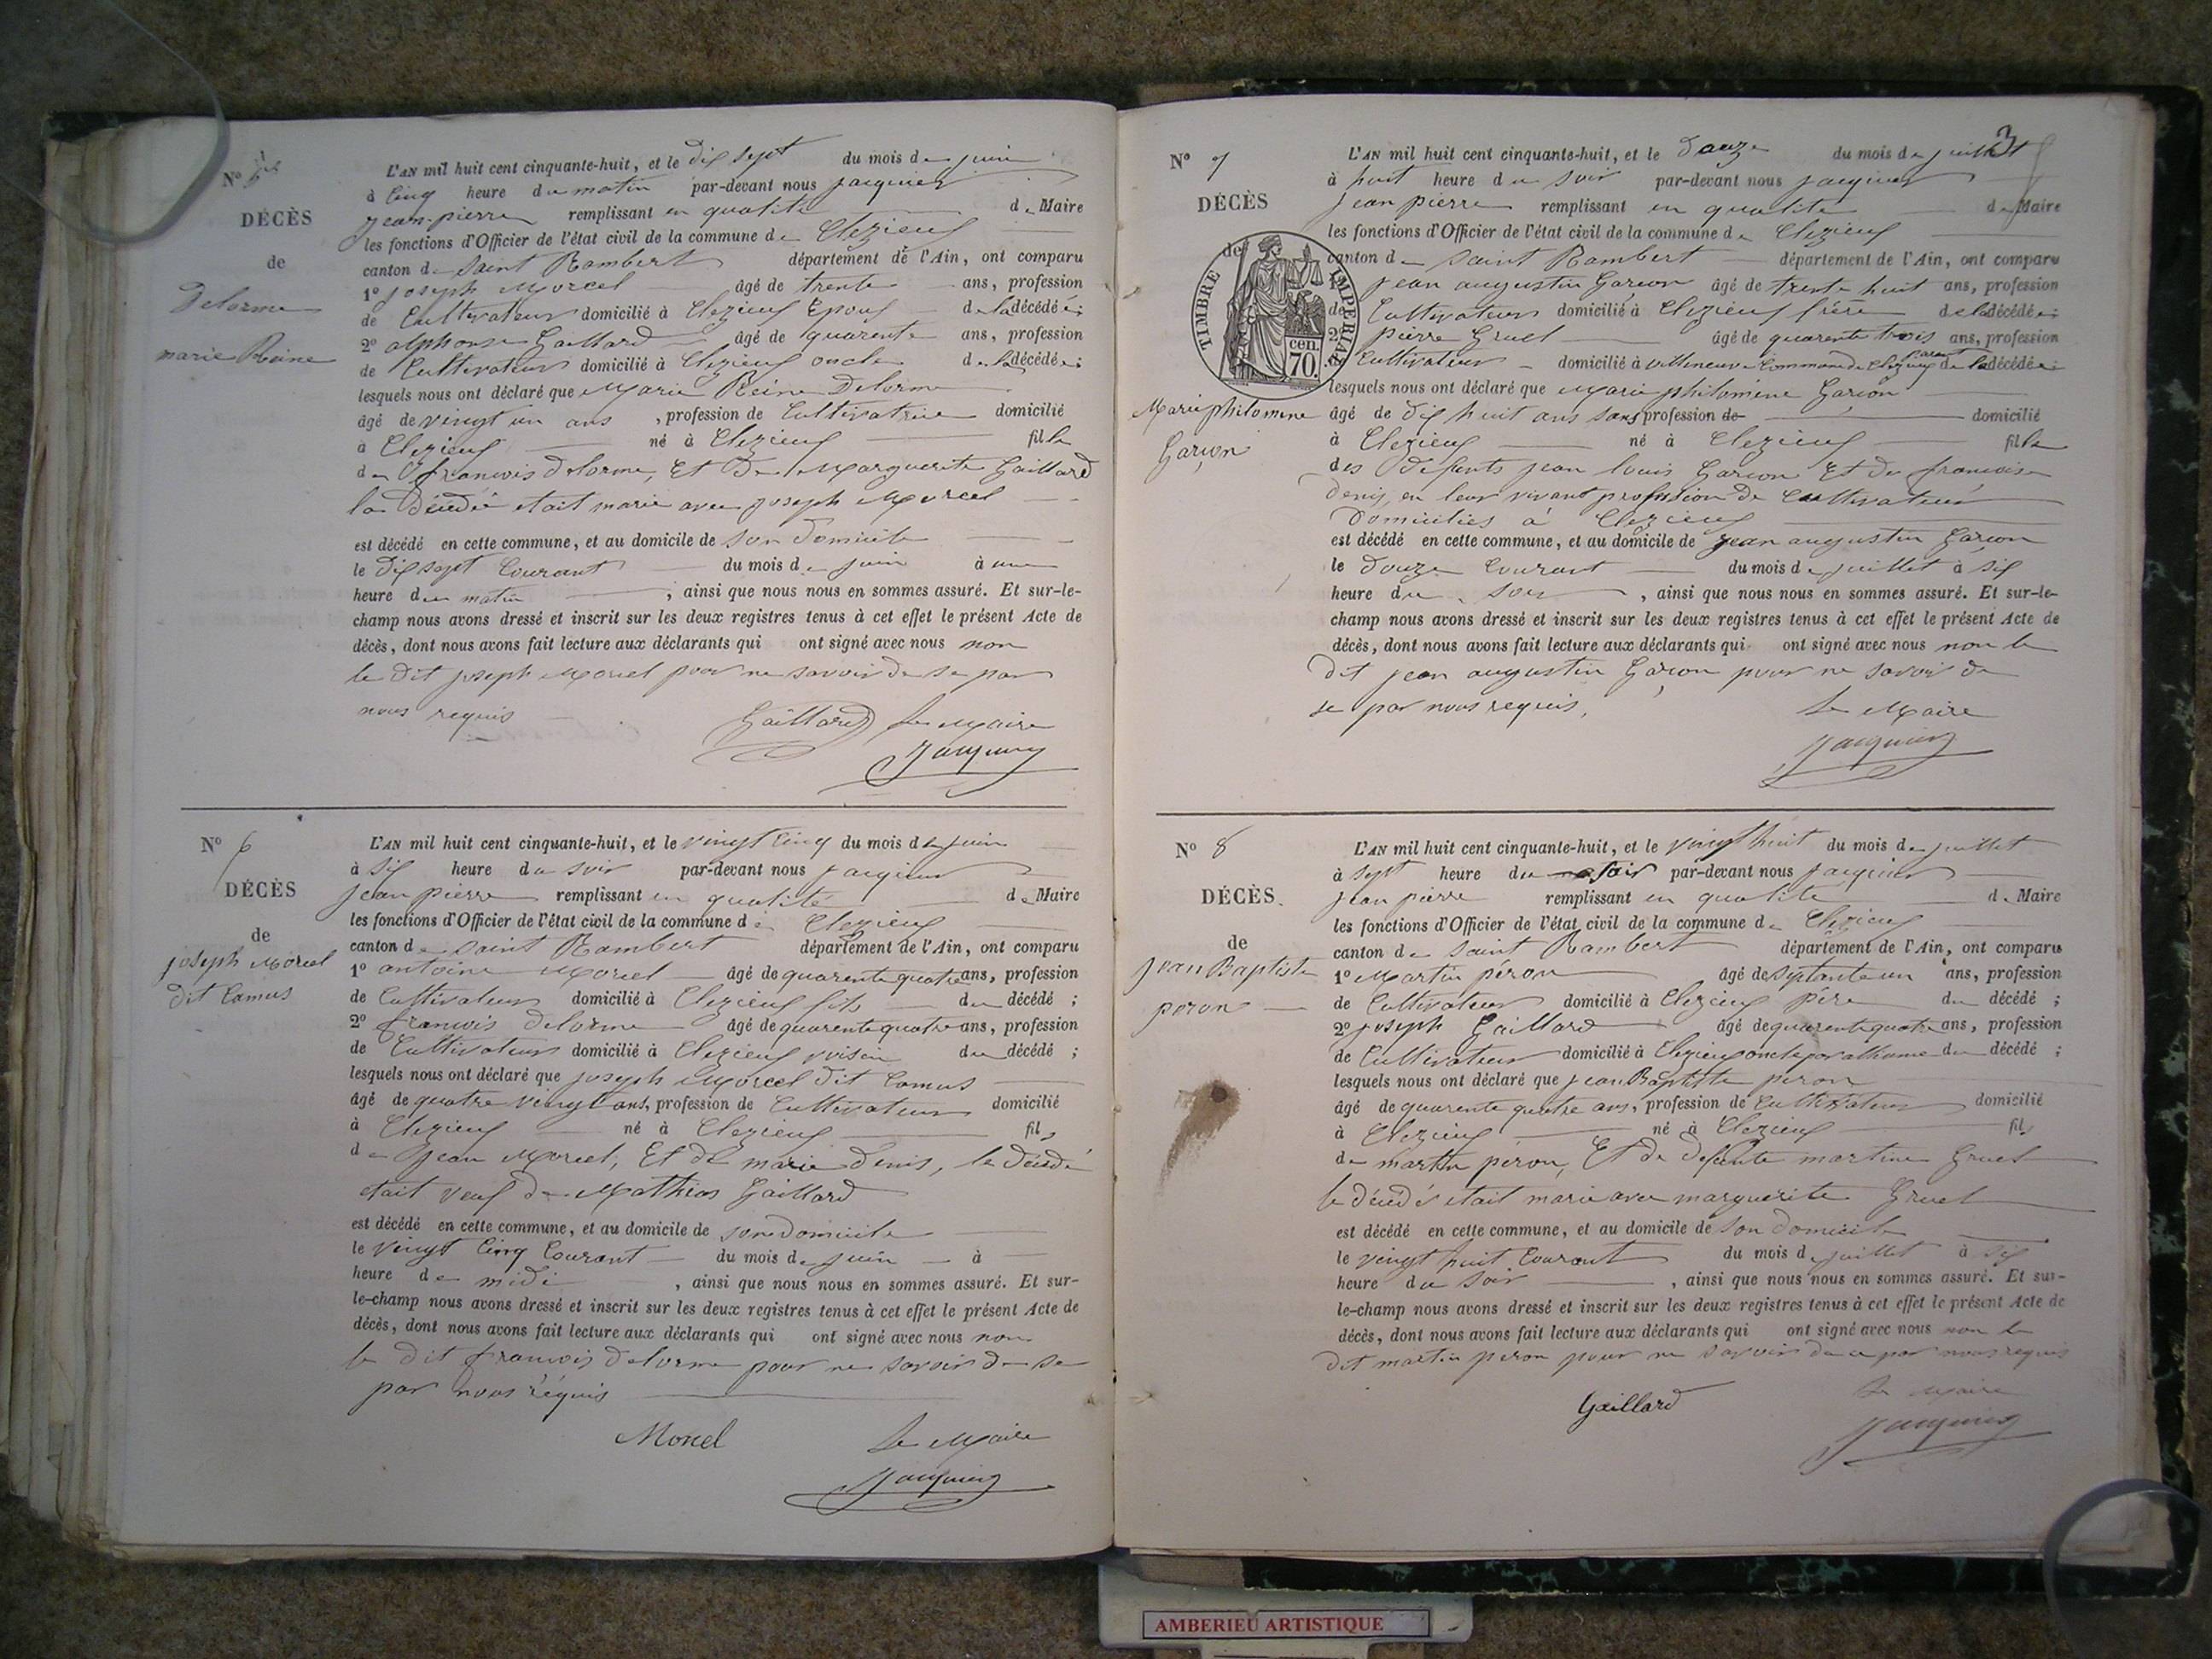 N° 5
DÉCÈS
de
Delorme
marie Reine
L'AN mil huit cent cinquante-huit, et le dix sept du mois de juin
à cinq heure du matin par-devant nous jacquier
jean-pierre remplissant en qualité de Maire
les fonctions d'Officier de l'état civil de la commune de Clezieux
canton de saint Rambert département de l'Ain, ont comparu
1° joseph Morcel âgé de trente ans, profession
de Cultivateur domicilié à Clezieux Epoux de la décédée;
2° alphonse Gaillard âgé de quarente ans, profession
de Cultivateur domicilié à Clezieux oncle de la décédée;
lesquels nous ont déclaré que Marie Reine Delorme
âgé de vingt un ans, profession de Cultivatrice domicilié
à Clezieux né à Clezieux fille
de françois delorme, Et De Marguerite Gaillard
la Décédée etait marié avec joseph Morcel
est décédé en cette commune, et au domicile de son domicile
le dix sept Courant du mois de juin à une
heure du matin, ainsi que nous nous en sommes assuré. Et sur-le-
champ nous avons dressé et inscrit sur les deux registres tenus à cet effet le présent Acte de
décès, dont nous avons fait lecture aux déclarants qui ont signé avec nous non
le dit joseph Morcel pour ne savoir de se par
nous requis
Gaillard Le Maire
Jacquier
N° 6
DÉCÈS
de
joseph Morcel
dit Camus
L'AN mil huit cent cinquante-huit, et le vingt cinq du mois de juin
à six heure du soir par-devant nous jacquier
jean pierre remplissant en qualité de Maire
les fonctions d'Officier de l'état civil de la commune de Clezieux
canton de saint Rambert département de l'Ain, ont comparu
1° antoine Morcel âgé de quarente quatre ans, profession
de Cultivateur domicilié à Clezieux fils du décédé;
2° françois delorme âgé de quarente quatre ans, profession
de Cultivateur domicilié à Clezieux voisin du décédé;
lesquels nous ont déclaré que joseph Morcel dit Camus
âgé de quatre vingt ans, profession de Cultivateur domicilié
à Clezieux né à Clezieux fils
de jean Morcel, Et de marie denis, le décédé
etait veuf de Mathias Gaillard
est décédé en cette commune, et au domicile de son domicile
le vingt cinq Courant du mois de juin à
heure de midi, ainsi que nous nous en sommes assuré. Et sur-
le-champ nous avons dressé et inscrit sur les deux registres tenus à cet effet le présent Acte de
décès, dont nous avons fait lecture aux déclarants qui ont signé avec nous non
le dit françois delorme pour ne savoir de se
par nous réquis
Morcel Le Maire
Jacquier
3
N° 7
DÉCÈS
de
TIMBRE IMPÉRIAL
70 cen.
Marie philomène
Garçon
L'AN mil huit cent cinquante-huit, et le Douze du mois de juillet
à huit heure du soir par-devant nous jacquier
jean pierre remplissant en qualité de Maire
les fonctions d'Officier de l'état civil de la commune de Clezieux
canton de saint Rambert département de l'Ain, ont comparu
jean augustin Garçon âgé de trente huit ans, profession
de Cultivateur domicilié à Clezieux frère de la décédée;
2° pierre Gruel âgé de quarente trois ans, profession
de Cultivateur domicilié à villeneuve Commune de Clezieux parent de la décédée;
lesquels nous ont déclaré que Marie philomène Garçon
âgé de dix huit ans sans profession de domicilié
à Clezieux né à Clezieux fille
des défunts jean louis Garçon Et de françoise
denis, en leur vivant profession de Cultivateur
domiciliés à Clezieux
est décédé en cette commune, et au domicile de jean augustin Garçon
le douze Courant du mois de juillet à six
heure du soir, ainsi que nous nous en sommes assuré. Et sur-le-
champ nous avons dressé et inscrit sur les deux registres tenus à cet effet le présent Acte de
décès, dont nous avons fait lecture aux déclarants qui ont signé avec nous non le
dit jean augustin Garçon pour ne savoir de
se par nous requis,
Le Maire
Jacquier
N° 8
DÉCÈS.
de
jean Baptiste
peron
L'AN mil huit cent cinquante-huit, et le vingt huit du mois de juillet
à sept heure du soir par-devant nous jacquier
jean pierre remplissant en qualité de Maire
les fonctions d'Officier de l'état civil de la commune de Clezieux
canton de saint Rambert département de l'Ain, ont comparu
1° Martin péron âgé de septante un ans, profession
de Cultivateur domicilié à Clezieux père du décédé;
2° joseph Gaillard âgé de quarente quatre ans, profession
de Cultivateur domicilié à Clezieux oncle par alliance du décédé;
lesquels nous ont déclaré que jean Baptiste peron
âgé de quarente quatre ans, profession de Cultivateur domicilié
à Clezieux né à Clezieux fils
de martin peron, Et de défunte martine Gruel
le décédé etait marié avec marguerite Gruel
est décédé en cette commune, et au domicile de son domicile
le vingt huit Courant du mois de juillet à six
heure du soir, ainsi que nous nous en sommes assuré. Et sur-
le-champ nous avons dressé et inscrit sur les deux registres tenus à cet effet le présent Acte de
décès, dont nous avons fait lecture aux déclarants qui ont signé avec nous non le
dit martin peron pour ne savoir de ce par nous requis
Gaillard Le Maire
Jacquier
AMBERIEU ARTISTIQUE